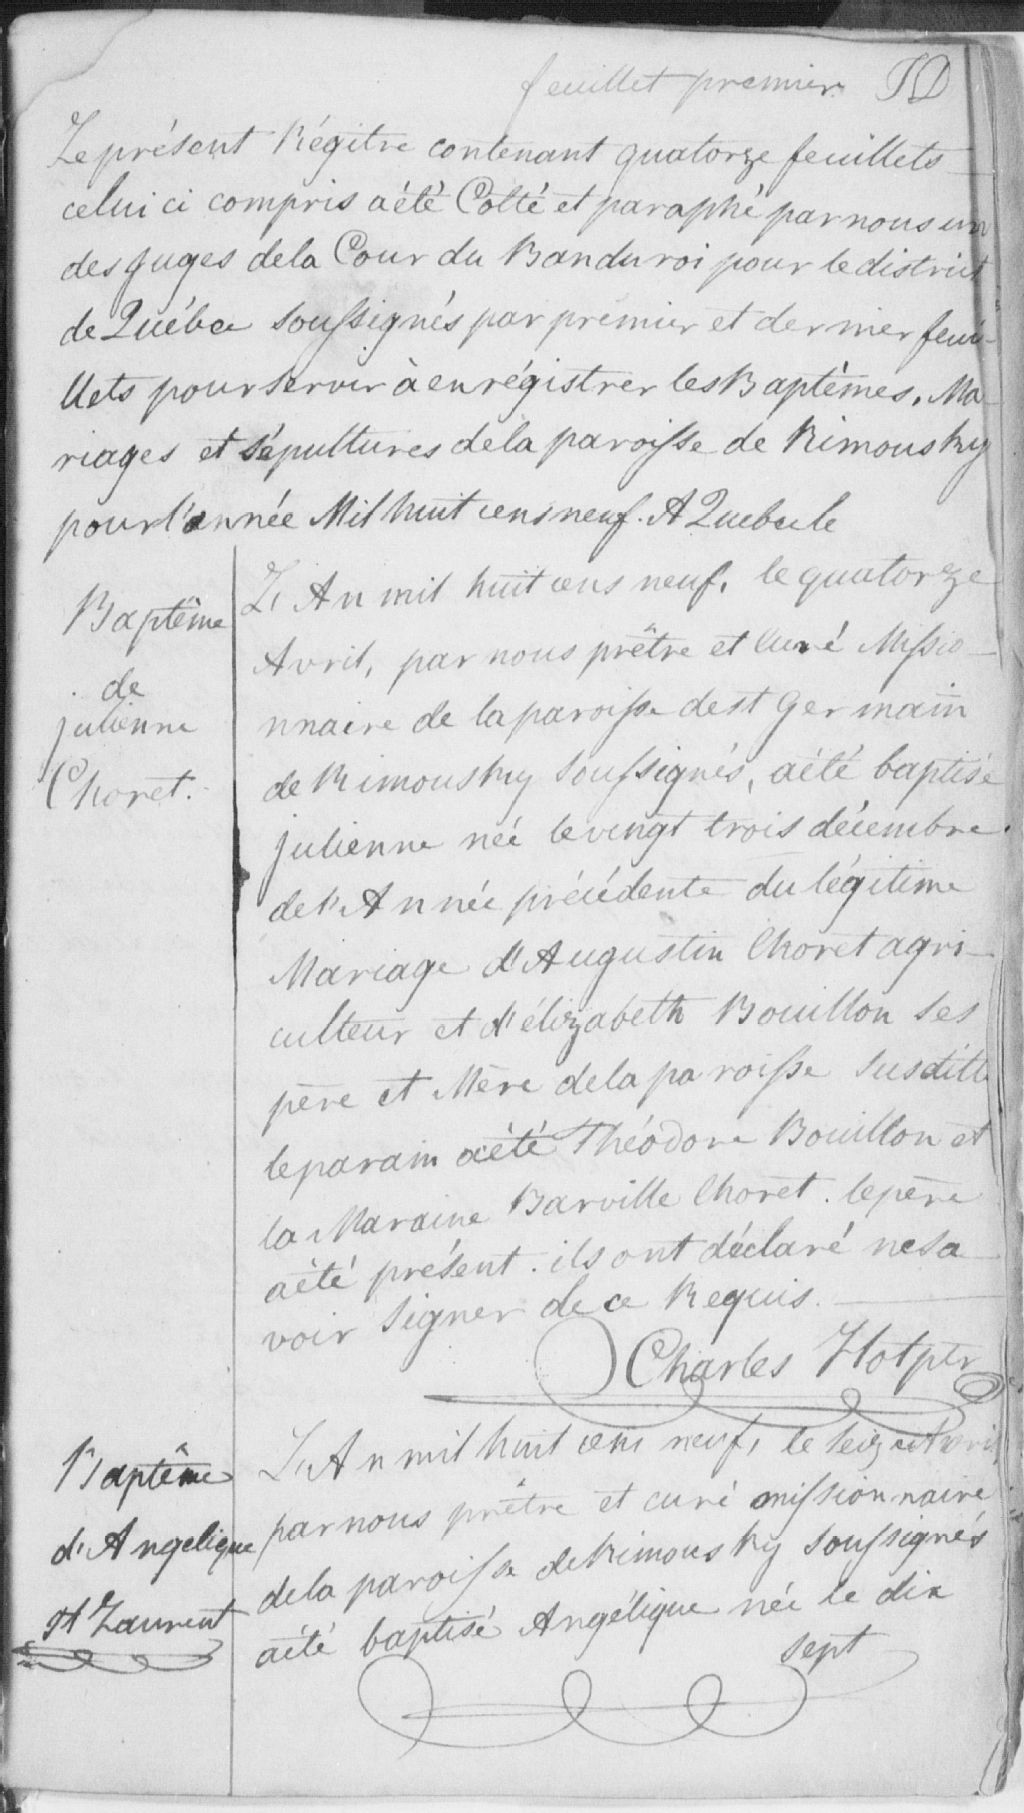 feuillet premier JD
Le présent Régitre contenant quatorze feuillets
celui ci compris aété Cotté et paraphé par nous un
des juges dela Cour du Banduroi pour le district
de Québec soussignés par premier et dernier feui-
llets pour servir à enrégistrer les Baptêmes, Ma-
riages et sépultures dela paroisse de Rimousky
pour l'année Mil huit cens neuf. A Quebec le
Baptême
de
julienne
Choret.
L'An mil huit cens neuf, le quatorze
Avril, par nous prêtre et Curé Missio-
nnaire de la paroisse de st Germain
de Rimousky soussignés, aété baptisé
julienne née le vingt trois décembre
de l'Année précédente du légitime
Mariage d'Augustin Choret agri-
culteur et d'élizabeth Bouillon ses
père et Mère dela paroisse susditte
le parain aété Théodore Bouillon et
la Maraine Barville Choret. le père
aété présent. ils ont déclaré ne sa-
voir signer de ce Requis.
Charles Hot ptr
Baptême
d'Angelique
st Laurent
L'An mil huit cens neuf, le seize Avril
par nous prêtre et curé missionnaire
dela paroisse de Rimousky soussignés
aété baptisé Angélique née le dix
sept